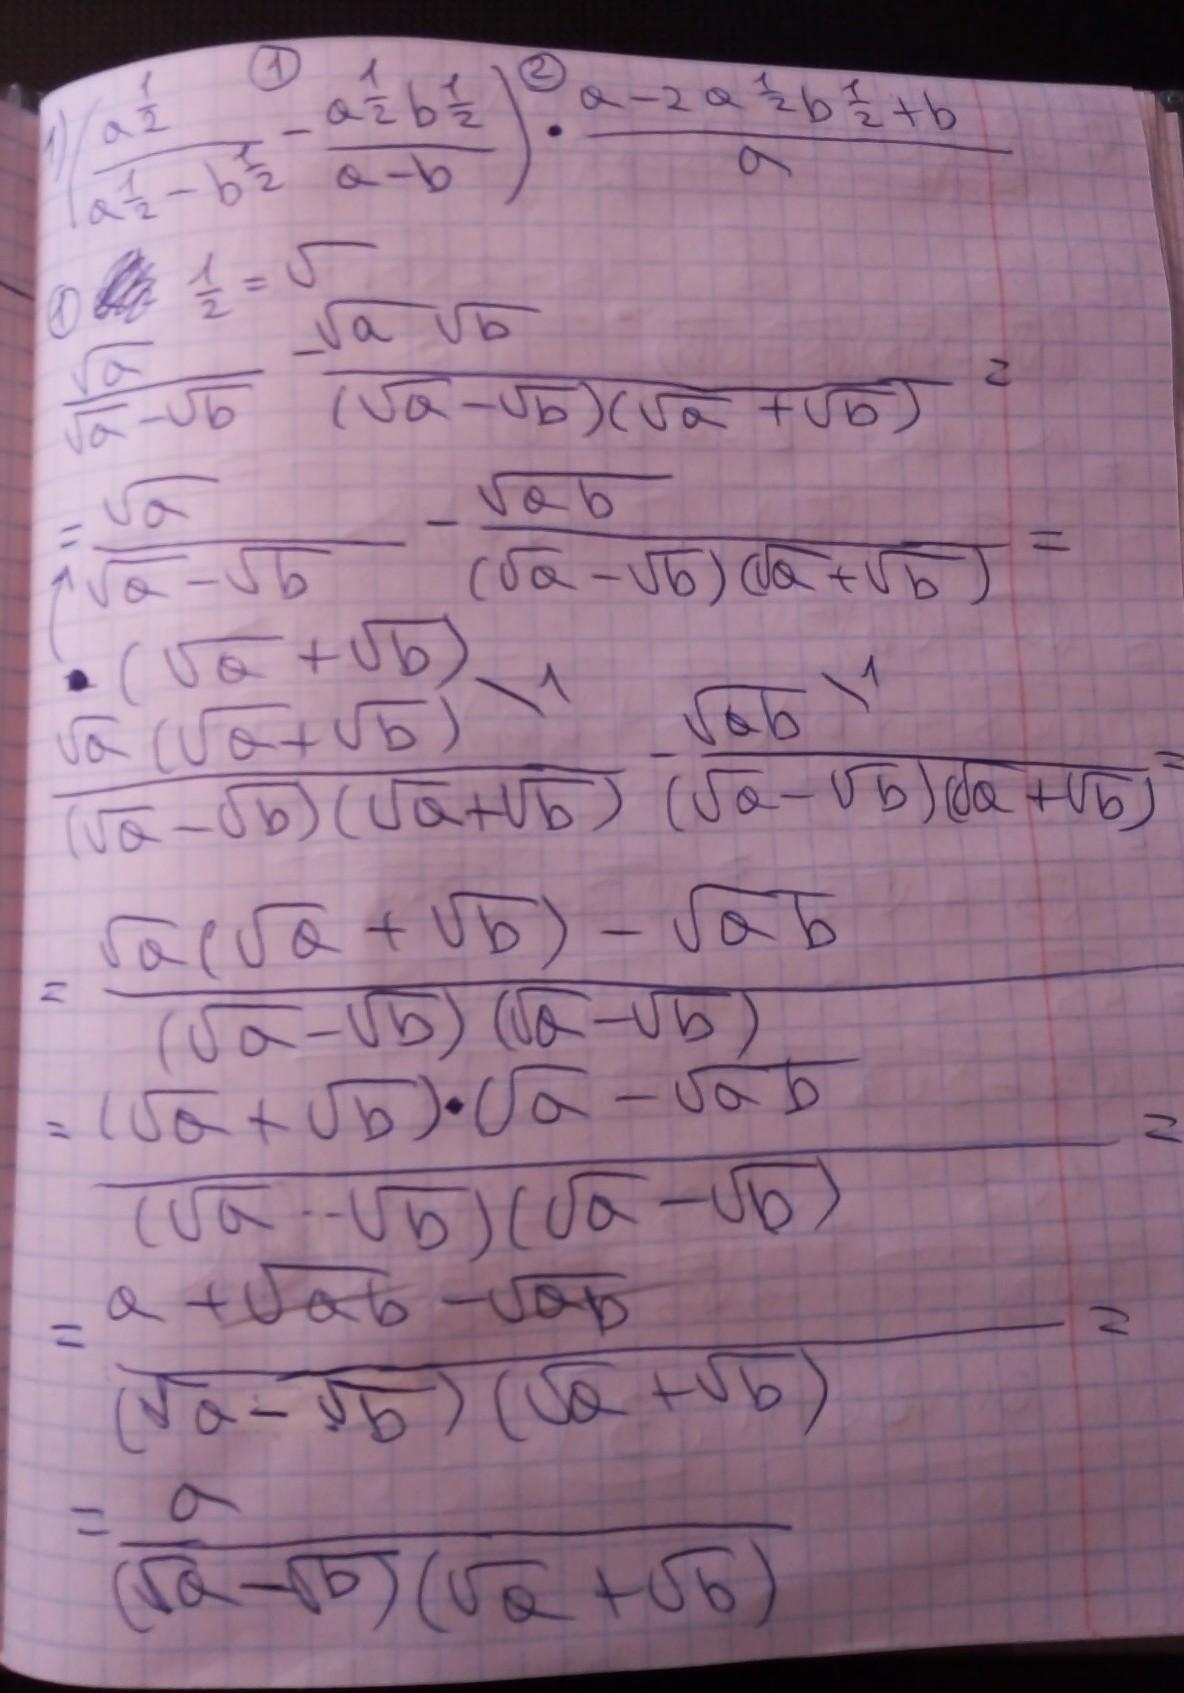 1) (a^{1/2} / (a^{1/2} - b^{1/2}) ① - a^{1/2} b^{1/2} / (a - b)) ② · (a - 2a^{1/2} b^{1/2} + b) / a
① 1/2 = √
√a / (√a - √b) - √a √b / ((√a - √b)(√a + √b)) =
= √a / (√a - √b) - √ab / ((√a - √b)(√a + √b)) =
· (√a + √b)
√a (√a + √b) \1 / ((√a - √b)(√a + √b)) - √ab \1 / ((√a - √b)(√a + √b)) =
= (√a (√a + √b) - √ab) / ((√a - √b)(√a - √b))
= (√a + √b) · (√a - √ab / ((√a - √b)(√a - √b)) =
= (a + √ab - √ab) / ((√a - √b)(√a + √b)) =
= a / ((√a - √b)(√a + √b))